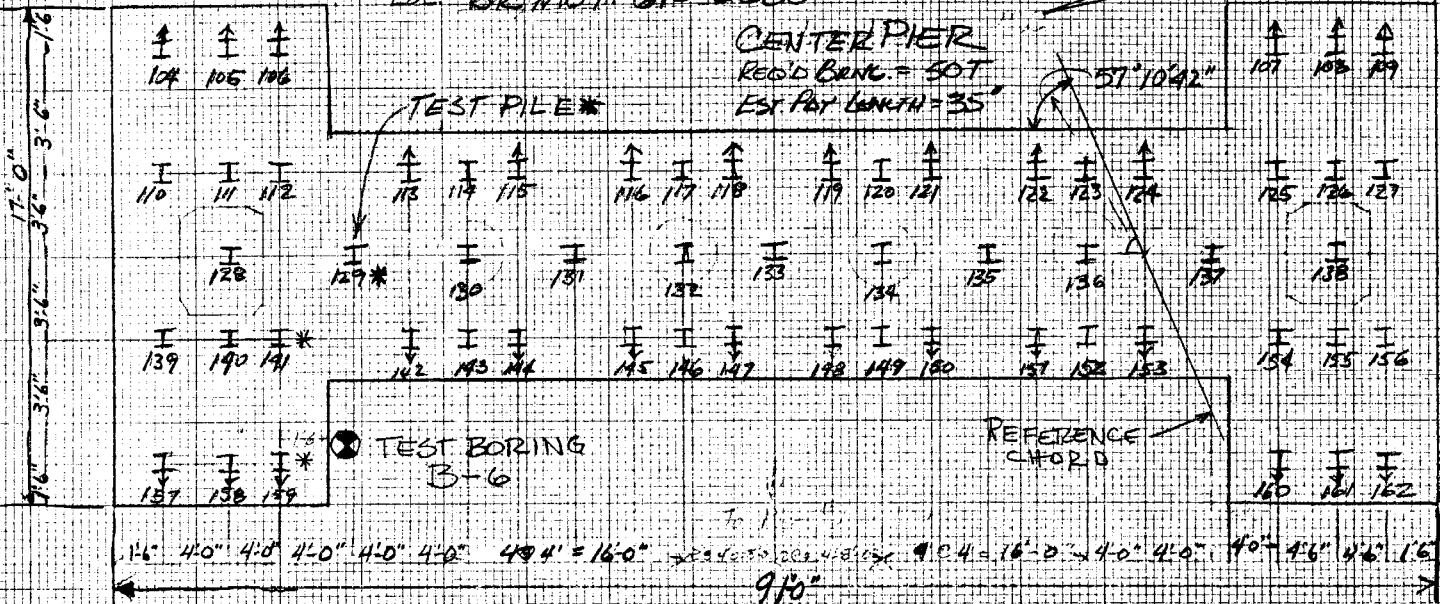 CENTER PIER
REQ'D BRNG. = 50T
EST PAY LENGTH = 35'
57°10'42"
TEST PILE*
104 105 106
107 108 109
110 111 112 113 114 115 116 117 118 119 120 121 122 123 124 125 126 127
128 129* 130 131 132 133 134 135 136 137 138
139 140 141* 142 143 144 145 146 147 148 149 150 151 152 153 154 155 156
157 158 159*
160 161 162
TEST BORING
B-6
REFERENCE
CHORD
17'-0"
1'6" 3'6" 3'6" 3'6" 3'6" 1'6"
1'6" 4'0" 4'0" 4'0" 4'0" 4'0" 4@4' = 16'-0"
4@4 = 16'-0" 4'0" 4'0" 4'0" 4'6" 4'6" 1'6"
91'0"